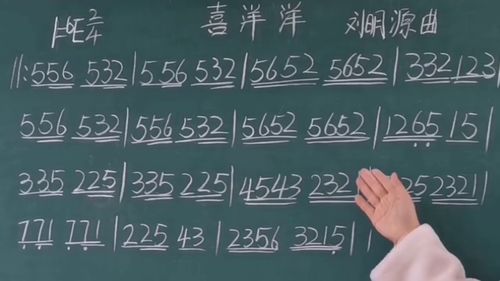 1=♭E 2/4 喜洋洋 刘明源曲
‖:556 532|556 532|5652 5652|332 123|
556 532|556 532|5652 5652|1265 15|
335 225|335 225|4543 232 25 2321|
771 771|225 43|2356 3215||